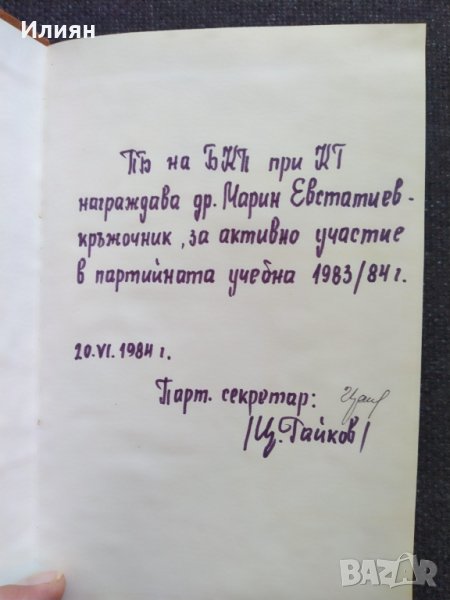 Илиян
ПБ на БКП при КГ
награждава др. Марин Евстатиев-
кръжочник, за активно участие
в партийната учебна 1983/84 г.
20.VI.1984 г.
Парт. секретар:
/Ц. Гайков/
BAZAR